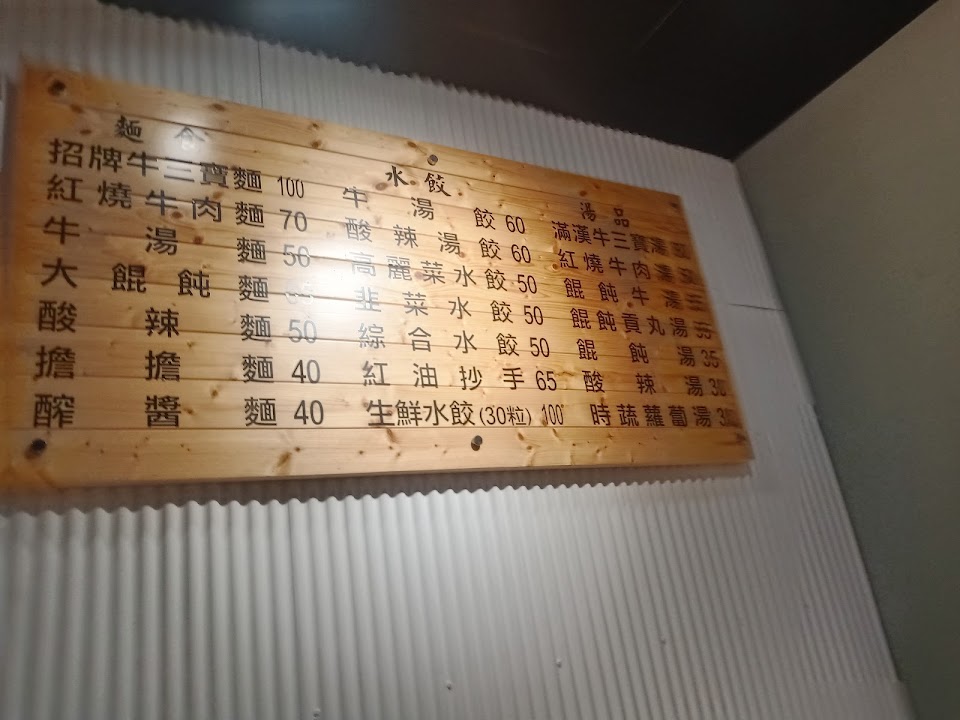 麵食
招牌牛三寶麵 100
紅燒牛肉麵 70
牛湯麵 50
大餛飩麵
酸辣麵 50
擔擔麵 40
醡醬麵 40
水餃
牛湯餃 60
酸辣湯餃 60
高麗菜水餃 50
韭菜水餃 50
綜合水餃 50
紅油抄手 65
生鮮水餃(30粒) 100
湯品
滿漢牛三寶湯
紅燒牛肉湯
餛飩牛湯
餛飩貢丸湯
餛飩湯 35
酸辣湯 30
時蔬蘿蔔湯 30